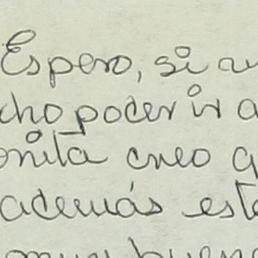 Espero, si
cho poder ir a
onita creo q
además est
muy buen